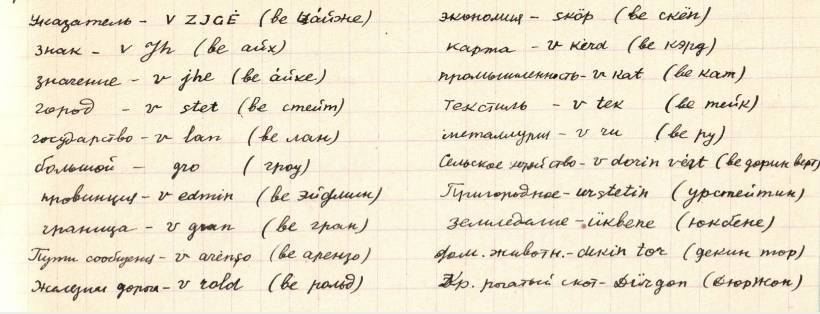 Указатель - v ZJGĖ (ве цайже)
знак - v Jh (ве айх)
значение - v jhe (ве áйхе)
город - v stet (ве стейт)
государство - v lan (ве лан)
большой - gro (гроу)
провинция - v edmin (ве эйдмин)
граница - v gran (ве гран)
Пути сообщения - v arenso (ве арензо)
Железная дорога - v rold (ве рольд)
экономия - sköp (ве скёп)
карта - v kerd (ве кэрд)
промышленность - v kat (ве кат)
текстиль - v tek (ве тейк)
металлургия - v ru (ве ру)
Сельское хозяйство - v dorin vert (ве дорин верт)
Пригородное - urstetin (урстейтин)
земледелие - ükbene (юкбене)
дом. животн. - dekin tor (декин тор)
Кр. рогатый скот - Dürgon (Дюржон)